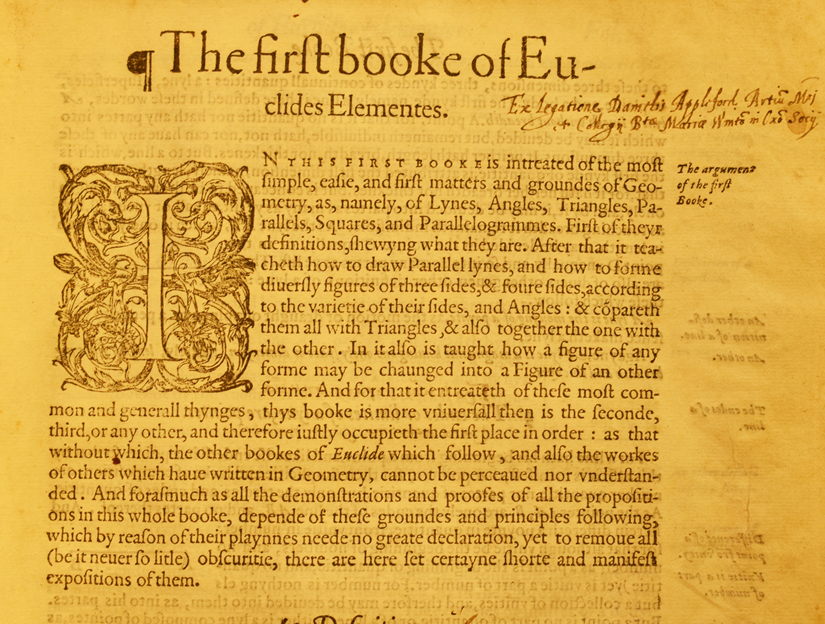 ¶ The firſt booke of Eu-
clides Elementes.
Ex legatione Danielis Appleford Artiū
Collegij Btæ Mariæ Wintō in Oxō Socij
IN THIS FIRST BOOKE is intreated of the moſt
ſimple, eaſie, and firſt matters and groundes of Geo-
metry, as, namely, of Lynes, Angles, Triangles, Pa-
rallels, Squares, and Parallelogrammes. Firſt of theyr
definitions, ſhewyng what they are. After that it tea-
cheth how to draw Parallel lynes, and how to forme
diuerſly figures of three ſides, & foure ſides, according
to the varietie of their ſides, and Angles : & cōpareth
them all with Triangles, & alſo together the one with
the other. In it alſo is taught how a figure of any
forme may be chaunged into a Figure of an other
forme. And for that it entreateth of theſe moſt com-
mon and generall thynges, thys booke is more vniuerſall then is the ſeconde,
third, or any other, and therefore iuſtly occupieth the firſt place in order : as that
without which, the other bookes of Euclide which follow, and alſo the workes
of others which haue written in Geometry, cannot be perceaued nor vnderſtan-
ded. And foraſmuch as all the demonſtrations and proofes of all the propoſiti-
ons in this whole booke, depende of theſe groundes and principles following,
which by reaſon of their playnnes neede no greate declaration, yet to remoue all
(be it neuer ſo litle) obſcuritie, there are here ſet certayne ſhorte and manifeſt
expoſitions of them.
The argument
of the firſt
Booke.